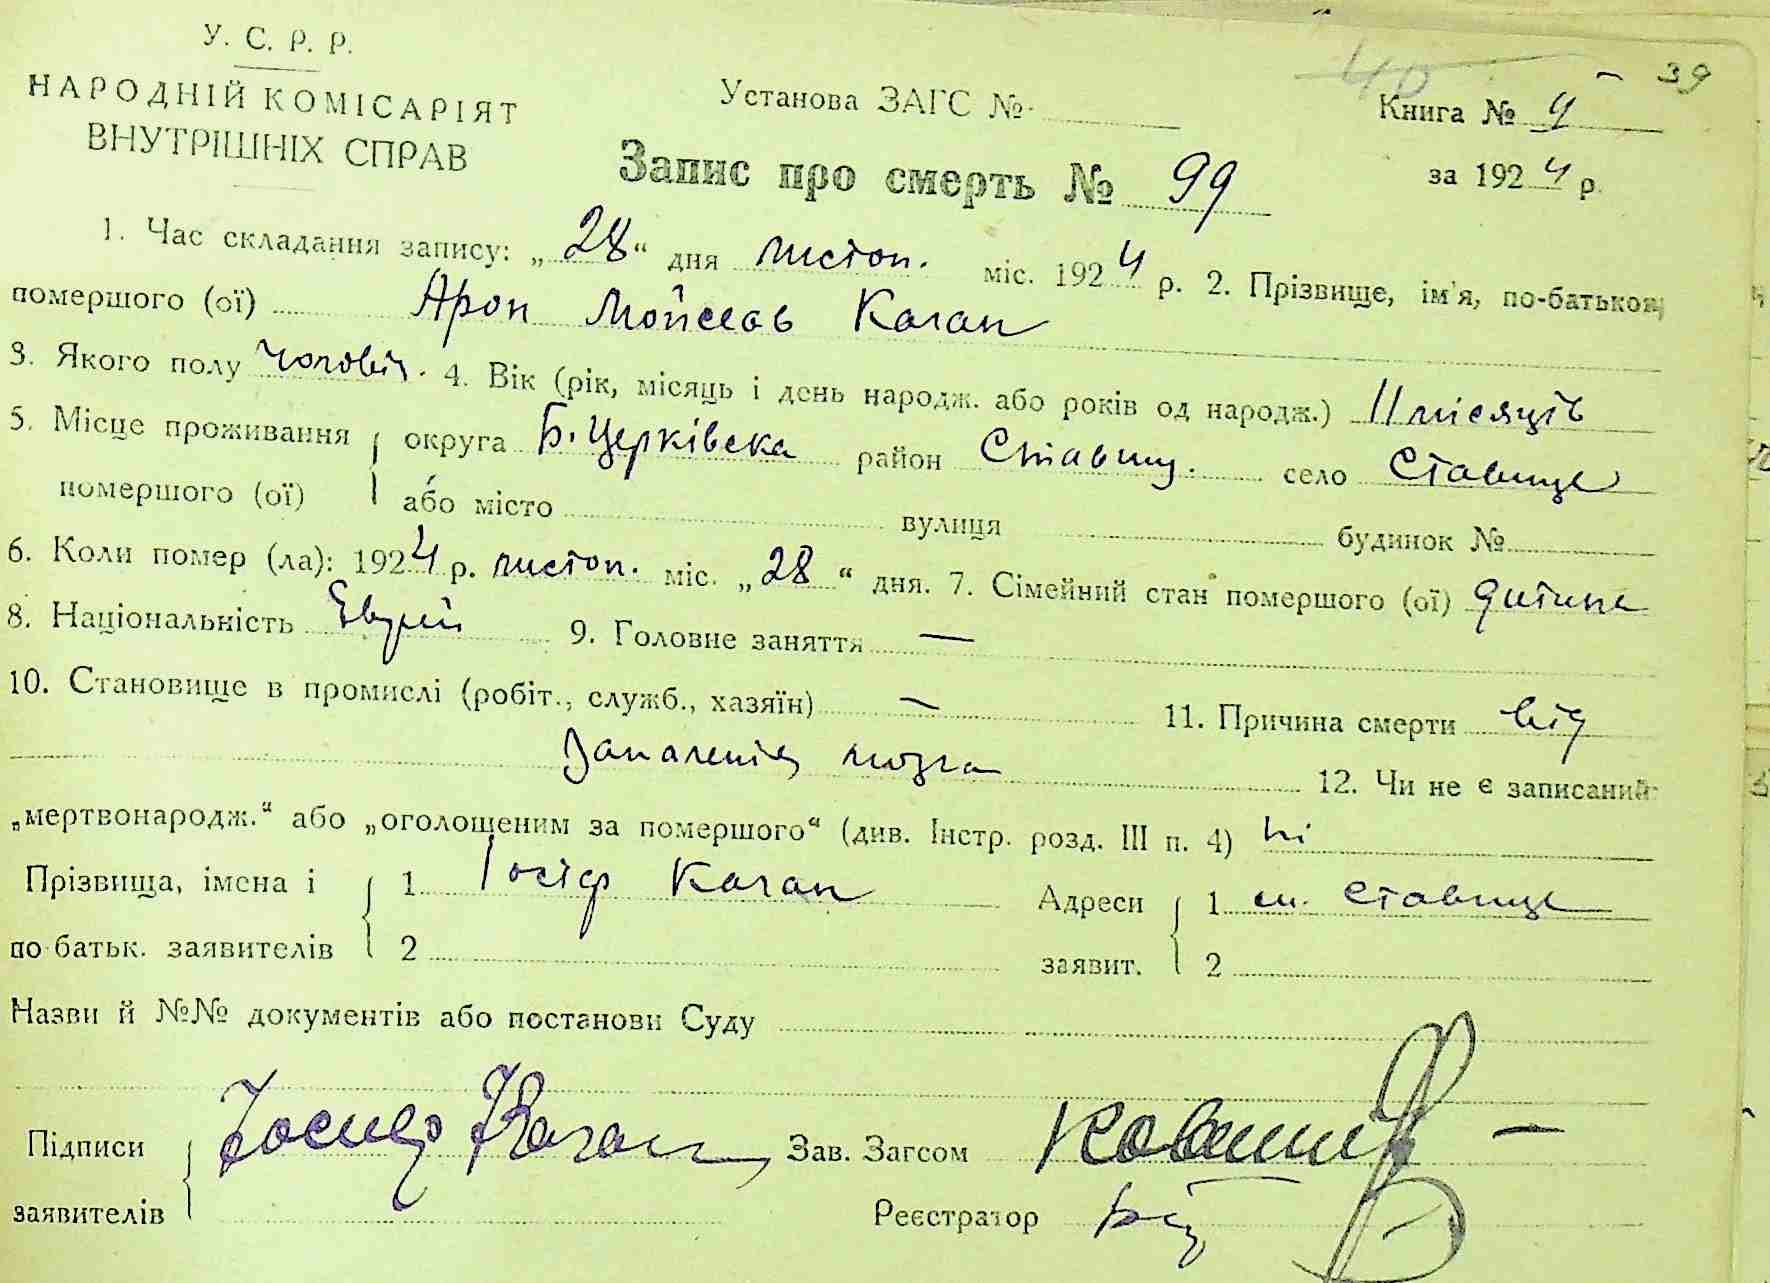 40 39
У. С. Р. Р.
НАРОДНІЙ КОМІСАРІЯТ
ВНУТРІШНІХ СПРАВ
Установа ЗАГС №
Книга № 4
за 1924 р.
Запис про смерть № 99
1. Час складання запису: „28“ дня листоп. міс. 1924 р. 2. Прізвище, ім'я, по-батькові
помершого (ої) Арон Мойсеов Каган
3. Якого полу чоловіч. 4. Вік (рік, місяць і день народж. або років од народж.) 11 місяців
5. Місце проживання помершого (ої) { округа Б. Церківська район Ставищ. село Ставище
або місто вулиця будинок №
6. Коли помер (ла): 1924 р. листоп. міс. „28“ дня. 7. Сімейний стан помершого (ої) дитина
8. Національність Еврей 9. Головне заняття —
10. Становище в промислі (робіт., служб., хазяїн) — 11. Причина смерти від
запаления мозга 12. Чи не є записаний
„мертвонародж.“ або „оголощеним за помершого“ (див. Інстр. розд. III п. 4) ні
Прізвища, імена і по батьк. заявителів { 1 Іосіф Каган Адреси заявит. { 1 м. Ставище
2 2
Назви й №№ документів або постанови Суду
Підписи заявителів { Іосиф Каган Зав. Загсом
Реєстратор